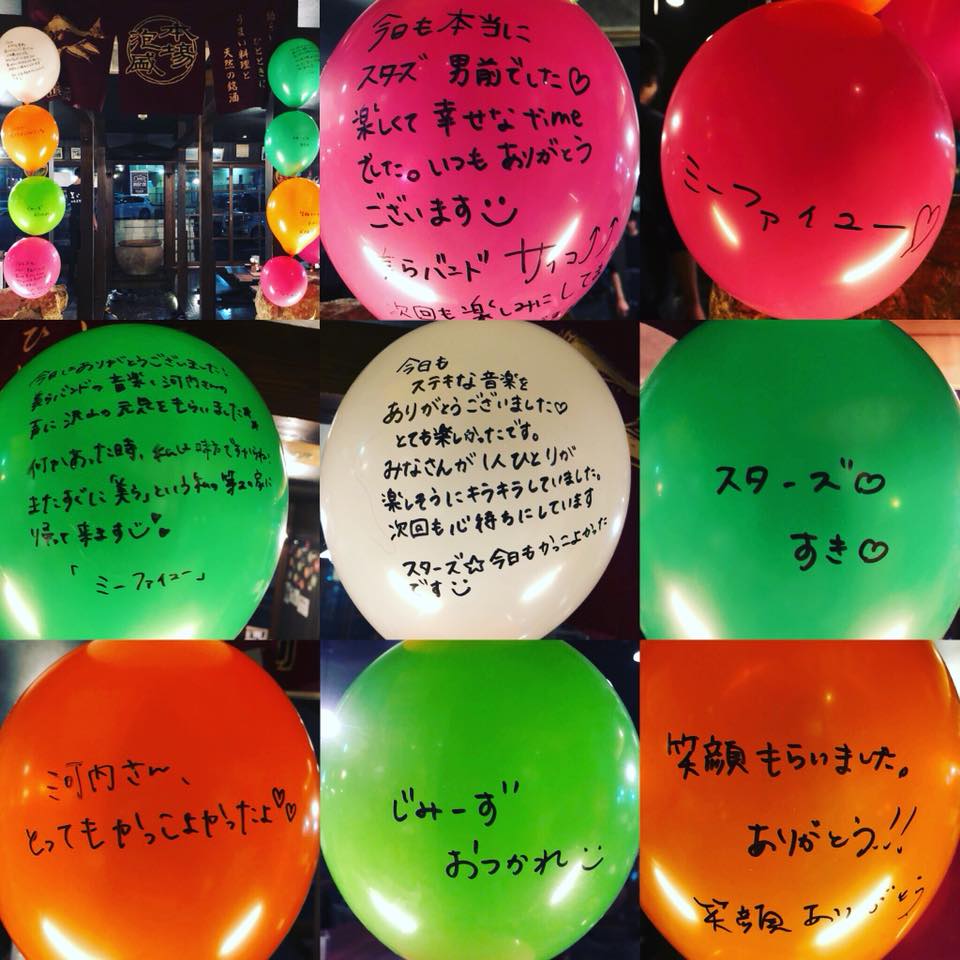 本場
泡盛
うまい料理と
天然の銘酒
ひとときに
今日も本当に
スターズ 男前でした♡
楽しくて 幸せなtime
でした。いつも ありがとう
ございます
らバンド サイコー↑↑
次回も楽しみにして
ミーファイユー♡
今日はありがとうございました!
美らバンドの音楽と河内さんの
声に沢山の元気をもらいました
何かあった時、
またすぐに「美ら」という私の第2の家に
帰って来ます
「ミーファイユー」
今日も
ステキな音楽を
ありがとうございました♡
とても楽しかったです。
みなさんが1人ひとりが
楽しそうにキラキラしていました。
次回も心待ちにしています
スターズ☆今日もかっこよかった
です
スターズ♡
すき♡
河内さん、
とってもかっこよかったよ♡♡
じみーず
おつかれ
笑顔もらいました。
ありがとう!!
笑顔 ありがとう